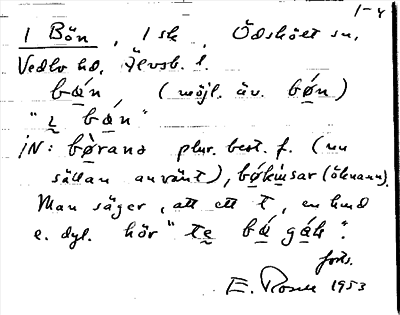 1-4
1 Bön, 1 sk, Ödskölt sn,
Vedbo hd, Älvsb. l.
bǿn (möjl. äv. bǿn)
"i bǿn"
iN: bø̀rana plur. best. f. (nu
sällan använt), bø̀kúsar (öknamn).
Man säger, att ett t, en hund
e. dyl. hör "te bǿ gåh".
forts.
E. Rosell 1953